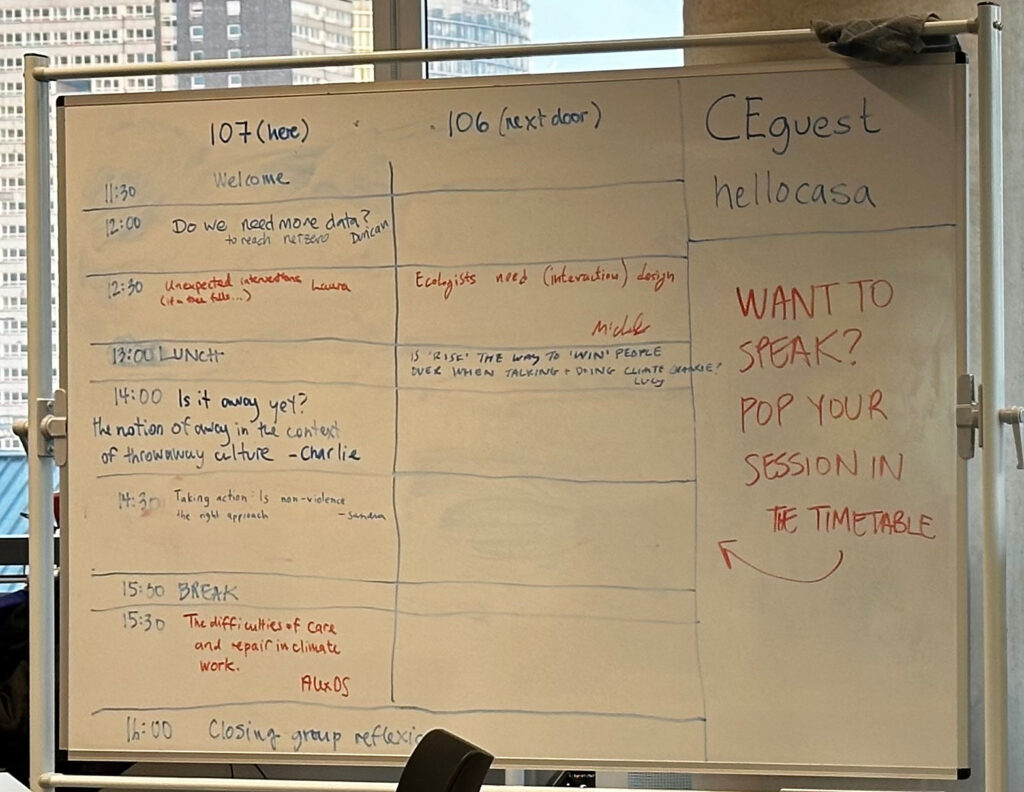 107 (here)
106 (next door)
11:30 Welcome
12:00 Do we need more data?
to reach netzero Duncan
12:30 Unexpected interventions Laura
(if a tree falls...)
Ecologists need (interaction) design
13:00 LUNCH
IS 'RISK' THE WAY TO 'WIN' PEOPLE
OVER WHEN TALKING + DOING CLIMATE CHANGE?
LUCY
14:00 Is it away yet?
the notion of away in the context
of throwaway culture - Charlie
14:30 Taking action: Is non-violence
the right approach - Sandra
15:30 BREAK
15:30 The difficulties of care
and repair in climate
work.
Alex DS
16:00 Closing group reflexio
CEguest
hellocasa
WANT TO
SPEAK?
POP YOUR
SESSION IN
THE TIMETABLE